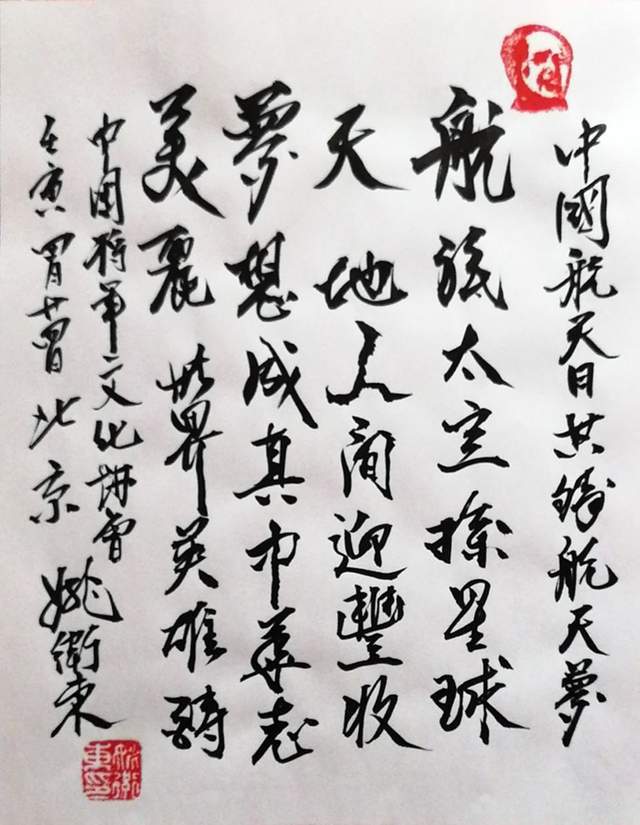 中國航天日共鑄航天夢
航太空探星球
天地人間迎豐收
夢想成真中華志
美麗世界英雄
中国将軍文化會
壬寅四月廿四日北京
姚衛東
姚衛東印